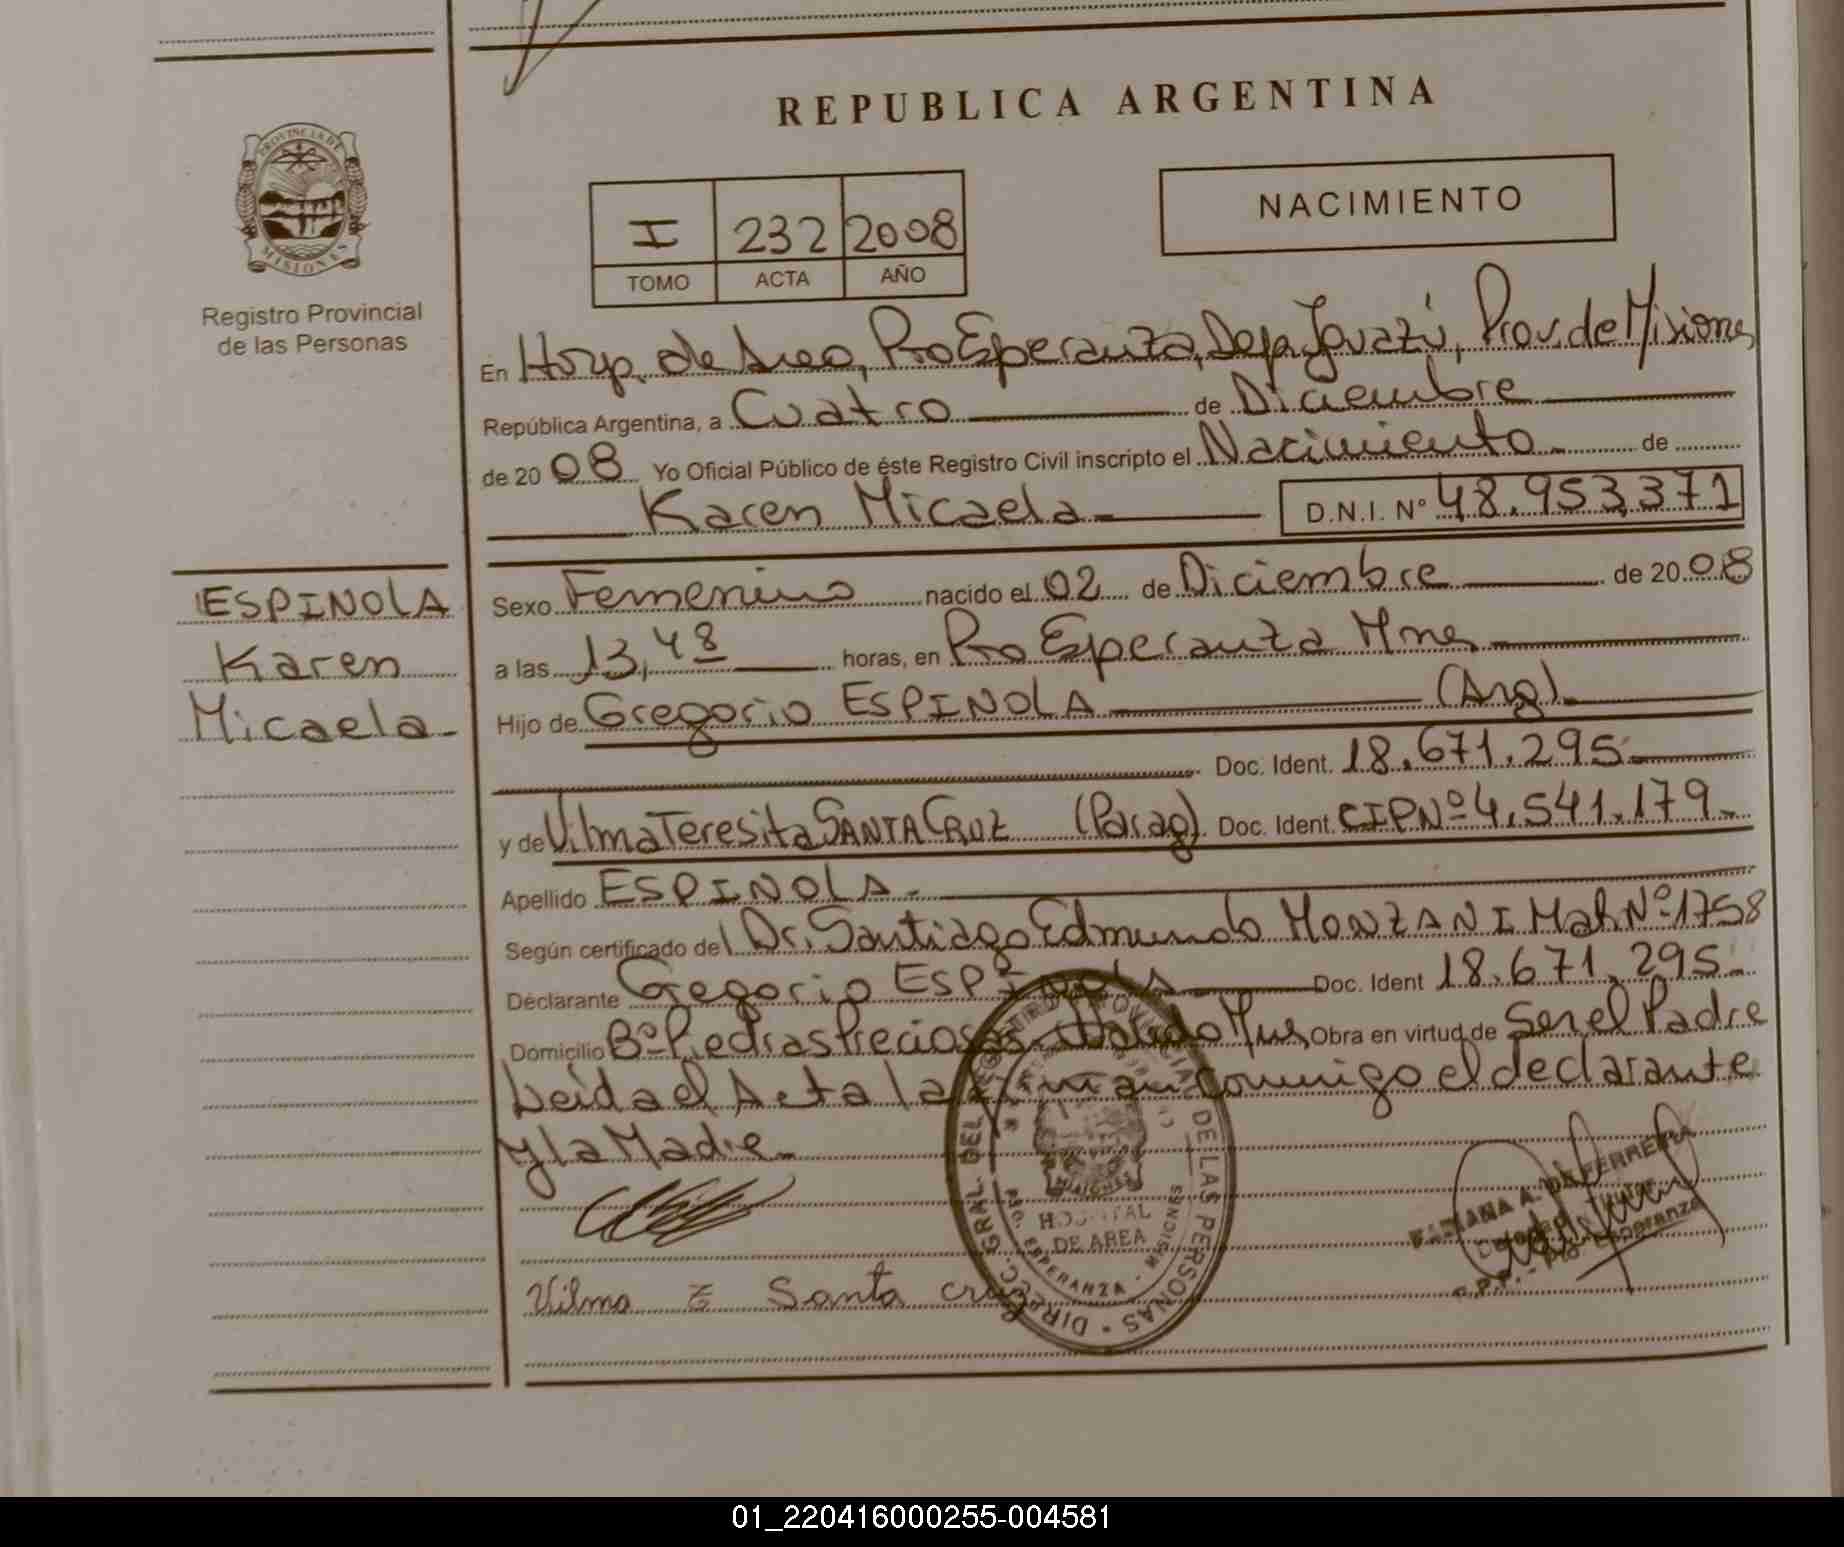 REPUBLICA ARGENTINA
PROVINCIA DE
MISIONES
Registro Provincial
de las Personas
I 232 2008
TOMO ACTA AÑO
NACIMIENTO
En Hosp. de Area, Pto Esperanza, Dep. Iguazú, Prov. de Misiones
República Argentina, a Cuatro de Diciembre
de 2008 Yo Oficial Público de éste Registro Civil inscripto el Nacimiento de
Karen Micaela D.N.I. Nº 48.953.371
ESPINOLA
Karen
Micaela
Sexo Femenino nacido el 02 de Diciembre de 2008
a las 13,48 horas, en Pto Esperanza Mnes
Hijo de Gregorio ESPINOLA (Arg).
Doc. Ident. 18.671.295
y de Vilma Teresita SANTA CRUZ (Parag). Doc. Ident. CIP Nº 4.541.179.
Apellido ESPINOLA
Según certificado del Dr. Santiago Edmundo MONZANI Mat. Nº 1758
Declarante Gregorio ESPINOLA Doc. Ident 18.671.295
Domicilio Bº Piedras Preciosas Obra en virtud de Ser el Padre
Leida el Acta la firman conmigo el declarante
y la Madre
Vilma T Santa cruz
DIREC. GRAL. DEL REGISTRO PROVINCIAL DE LAS PERSONAS
MISIONES
HOSPITAL
DE AREA
PTO. ESPERANZA - MISIONES
FERREYRA
Pto. Esperanza
01_220416000255-004581